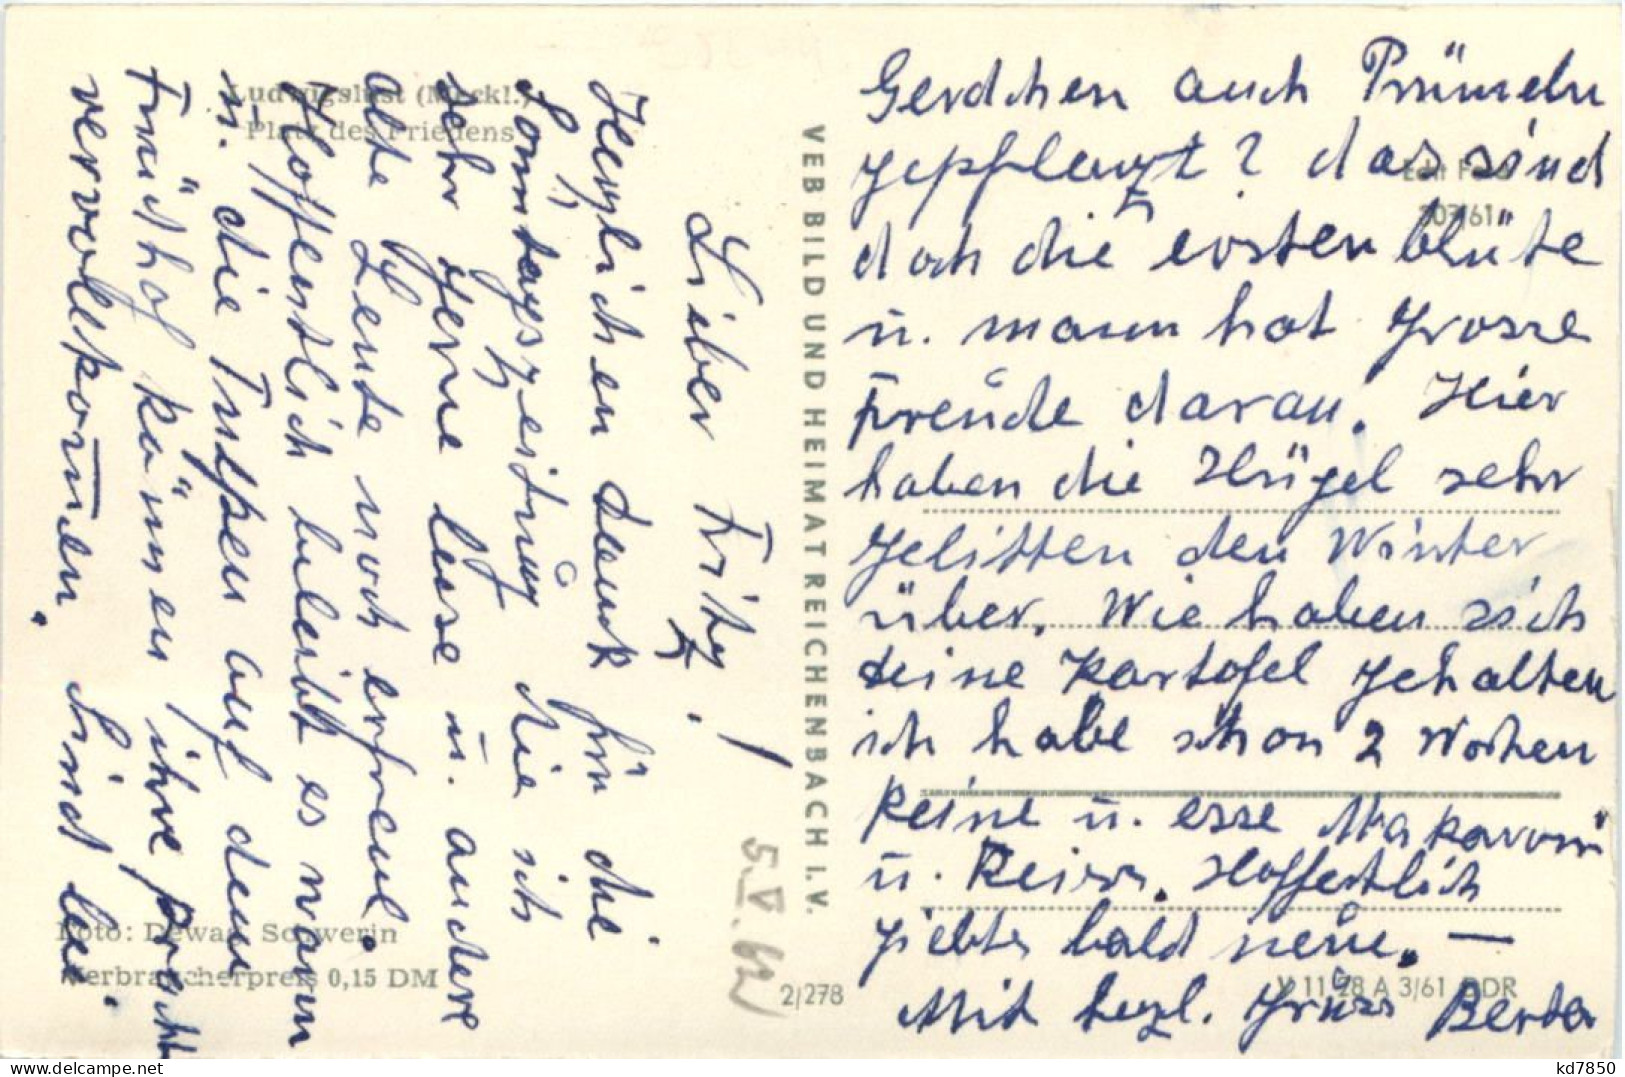 Ludwigslust (Meckl.)
Platz des Friedens
Lieber Fritz!
Herzlichen Dank für die
Sonntagszeitung die ich
sehr gerne lese u. andere
alte Leute noch erfreut.
Hoffentlich bleibt es warm
u. die Tulpen auf dem
Friedhof können ihre Pracht
vervollkom̅en. Sind bei
Gerdchen auch Primeln
gepflanzt? das sind
doch die ersten blüte
u. mann hat grosse
Freude daran. Hier
haben die Hügel sehr
gelitten den Winter
über. Wie haben sich
deine Kartofel gehalten
ich habe schon 2 Wochen
keine u. esse Makaroni
u. Reiss. Hoffentlich
giebts bald neue. —
Mit herzl. Grüss Berta
VEB BILD UND HEIMAT REICHENBACH I. V.
5.V.62
Echt Foto
207/61
Foto: Dewag Schwerin
Verbraucherpreis 0,15 DM
2/278
V 11 28 A 3/61 DDR
kd7850